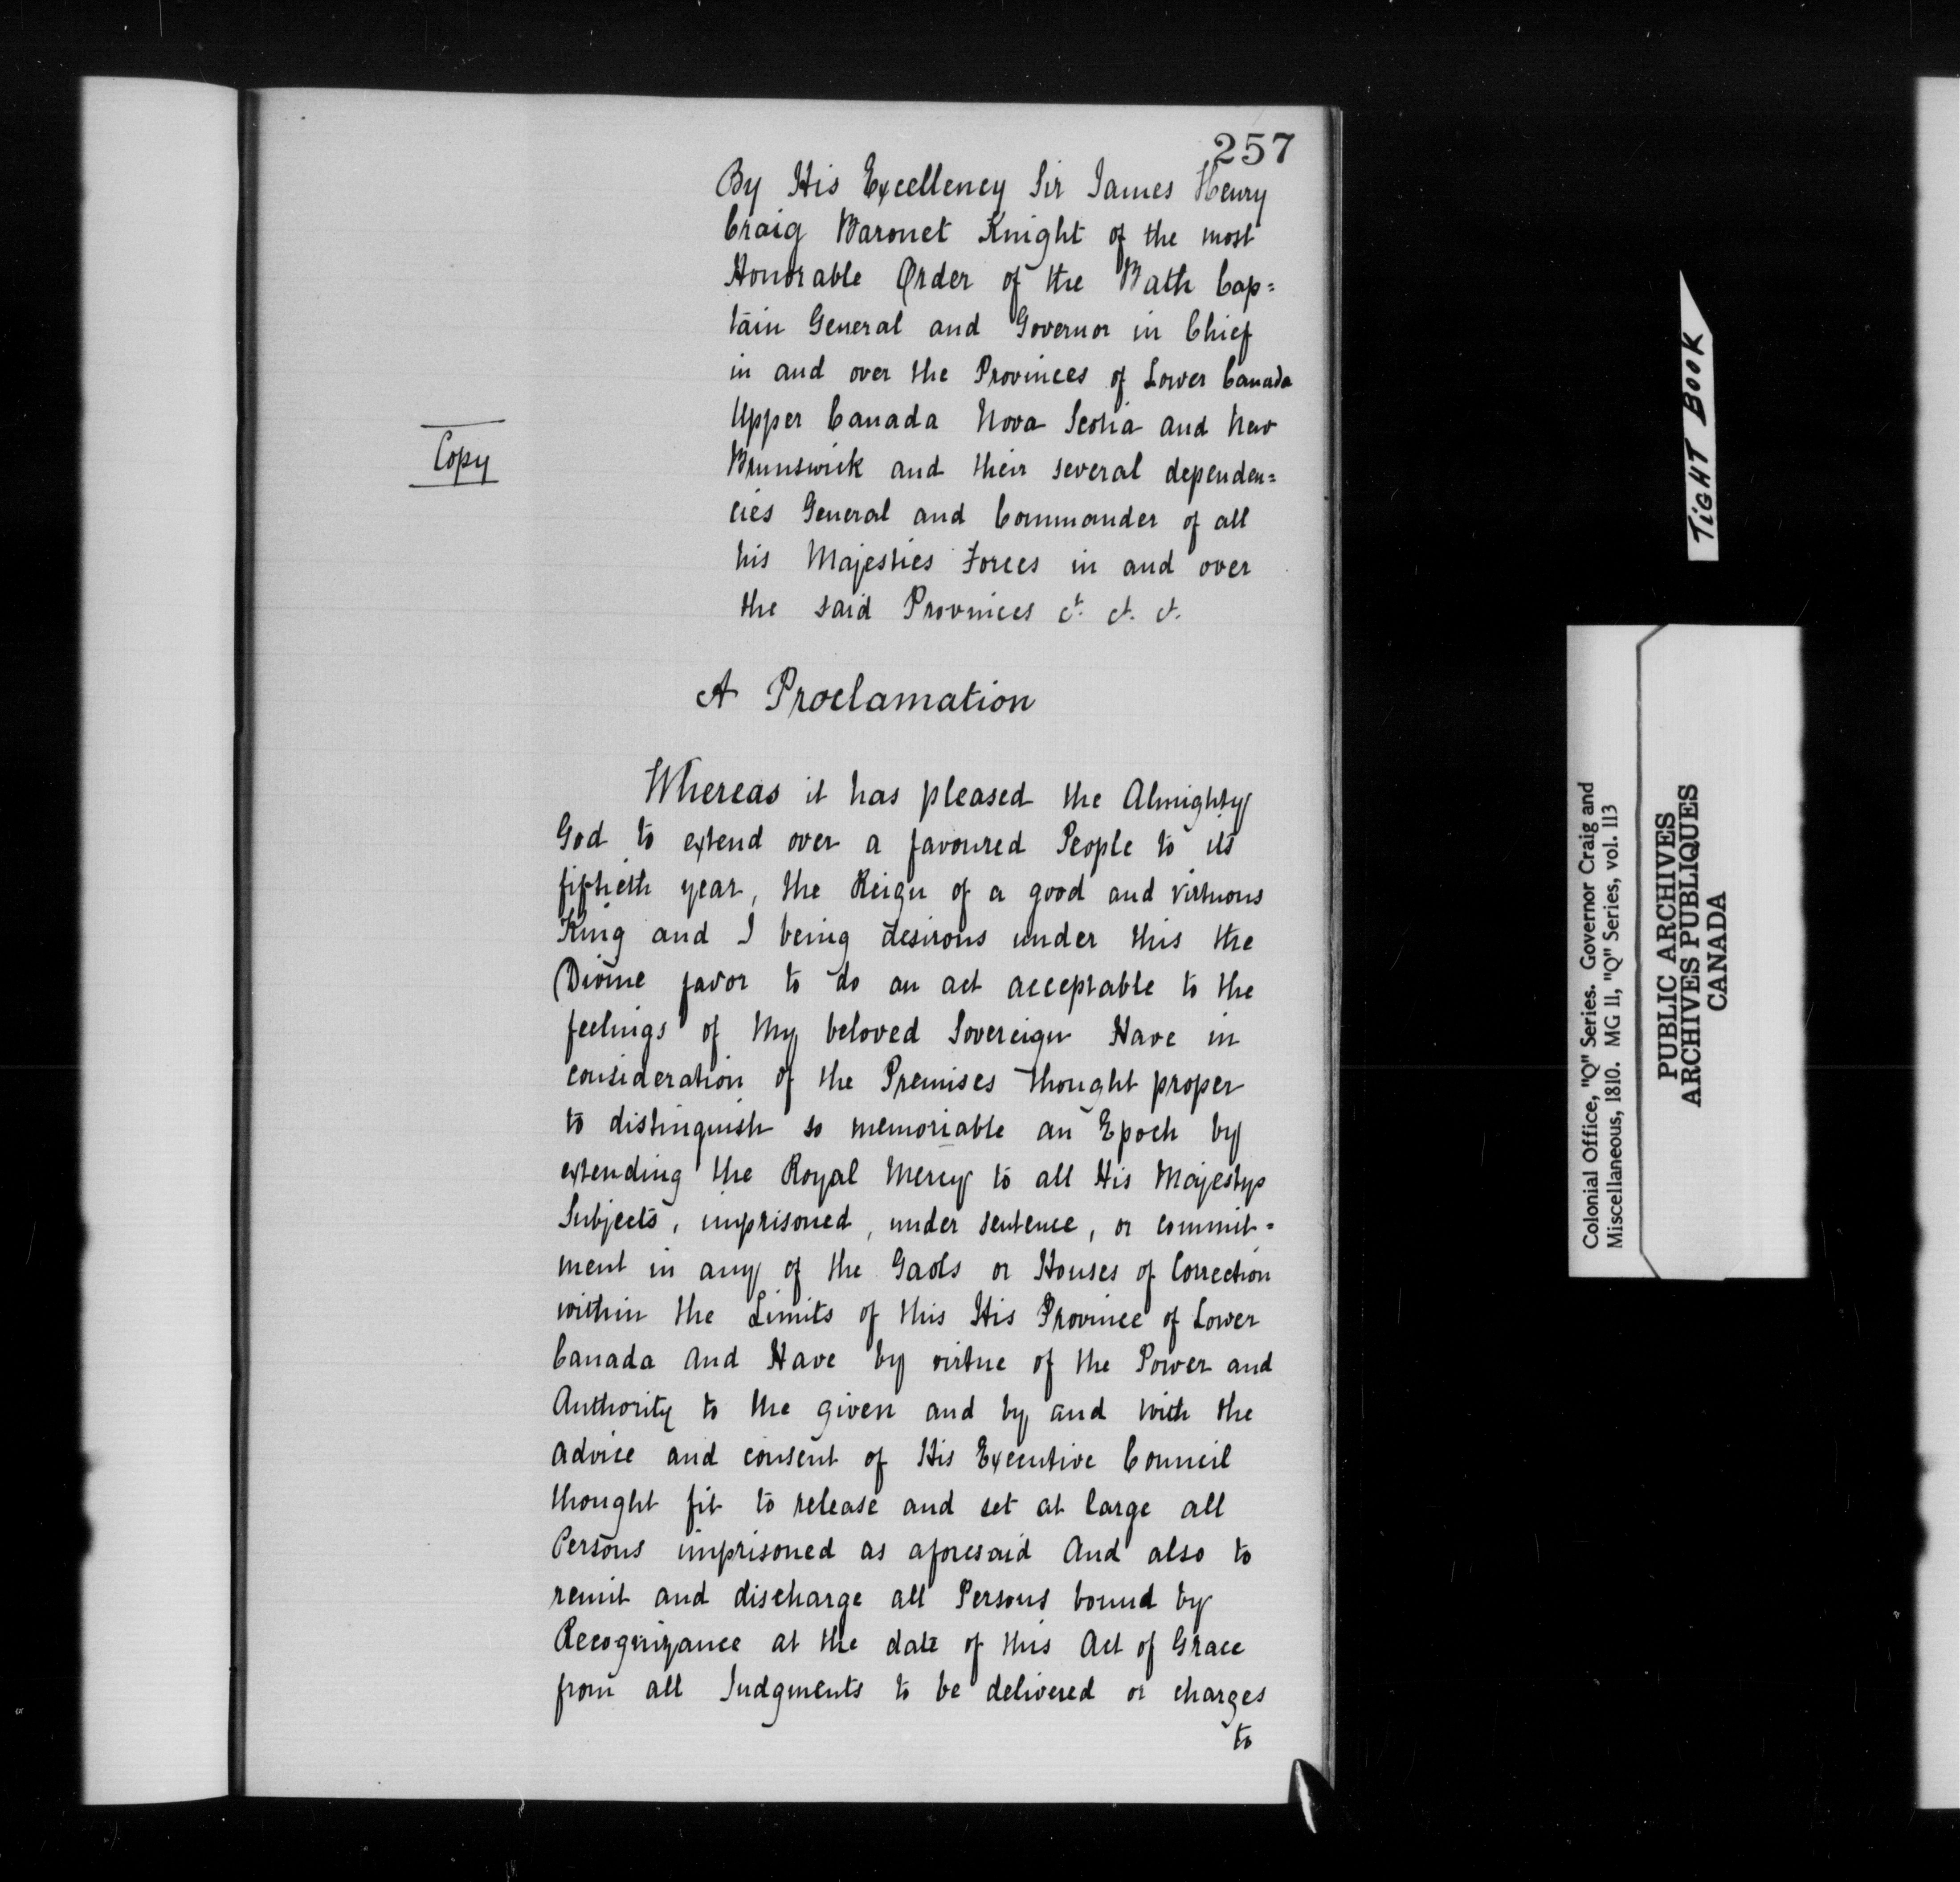 257
By His Excellency Sir James Henry
Craig Baronet Knight of the most
Honorable Order of the Bath Cap=
tain General and Governor in Chief
in and over the Provinces of Lower Canada
Upper Canada Nova Scotia and New
Copy
Brunswick and their several dependen=
cies General and Commander of all
his Majesties Forces in and over
the said Provinces &. &. &.
A Proclamation
Whereas it has pleased the Almighty
God to extend over a favoured People to its
fiftieth year, the Reign of a good and virtuous
King and I being desirous under this the
Divine favor to do an act acceptable to the
feelings of My beloved Sovereign Have in
consideration of the Premises thought proper
to distinguish so memoriable an Epoch by
extending the Royal Mercy to all His Majestys
Subjects, imprisoned, under sentence, or commit=
ment in any of the Gaols or Houses of Correction
within the Limits of this His Province of Lower
Canada and Have by virtue of the Power and
Authority to me given and by and with the
advice and consent of His Executive Council
thought fit to release and set at large all
Persons imprisoned as aforesaid And also to
remit and discharge all Persons bound by
Recognizance at the date of this Act of Grace
from all Judgments to be delivered or charges
to
TIGHT BOOK
Colonial Office, "Q" Series. Governor Craig and
Miscellaneous, 1810. MG 11, "Q" Series, vol. 113
PUBLIC ARCHIVES
ARCHIVES PUBLIQUES
CANADA